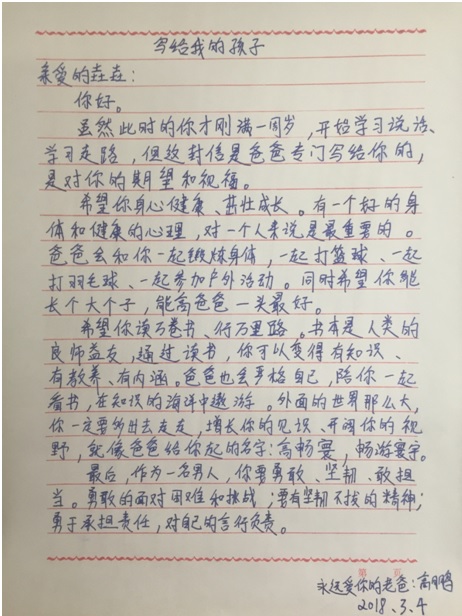 写给我的孩子
亲爱的垚垚：
你好。
虽然此时的你才刚满一周岁，开始学习说话、
学习走路，但这封信是爸爸专门写给你的，
是对你的期望和祝福。
希望你身心健康、茁壮成长。有一个好的身
体和健康的心理，对一个人来说是最重要的。
爸爸会和你一起锻炼身体，一起打篮球、一起
打羽毛球、一起参加户外活动。同时希望你能
长个大个子，能高爸爸一头最好。
希望你读万卷书、行万里路。书本是人类的
良师益友，通过读书，你可以变得有知识、
有教养、有内涵。爸爸也会严格自己，陪你一起
看书，在知识的海洋中遨游。外面的世界那么大，
你一定要多出去走走，增长你的见识、开阔你的视
野，就像爸爸给你起的名字：高畅寰，畅游寰宇。
最后，作为一名男人，你要勇敢、坚韧、敢担
当。勇敢的面对困难和挑战；要有坚韧不拔的精神；
勇于承担责任，对自己的言行负责。
第 页
永远爱你的老爸：高鹏
2018.3.4